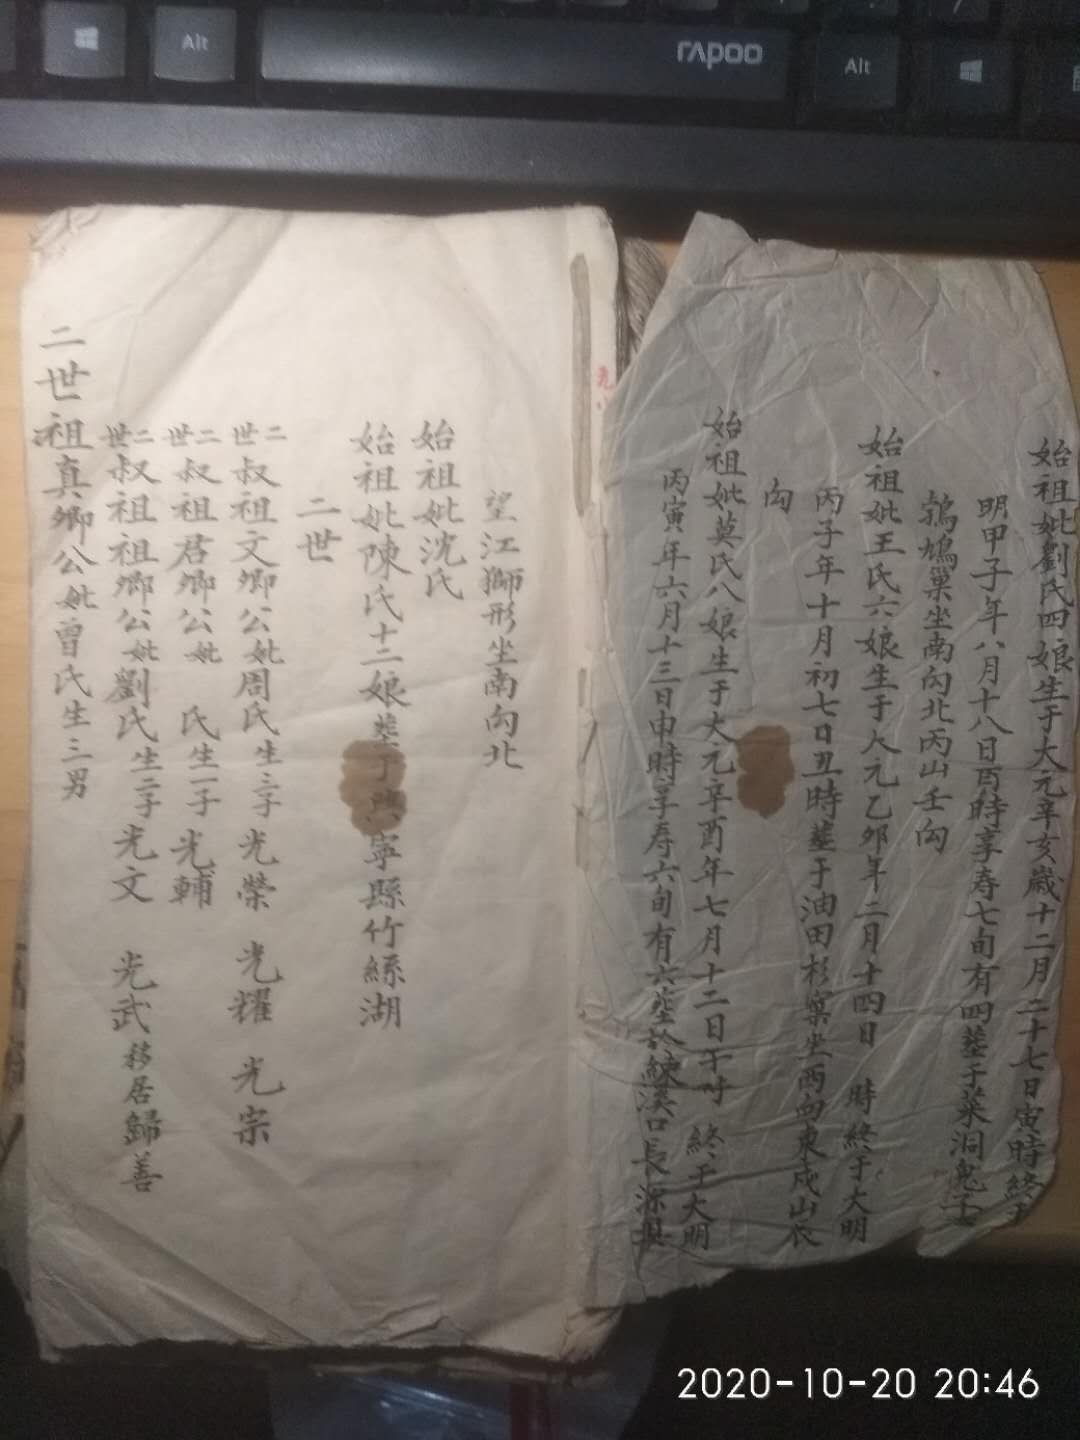 Alt
rapoo
Alt
始祖妣劉氏四娘生于大元辛亥歲十二月二十七日寅時終于
明甲子年八月十八日酉時享寿七旬有四塟于菜洞鬼子
鵓鳩巢坐南向北丙山壬向
始祖妣王氏六娘生于大元乙夘年二月十四日 時終于大明
丙子年十月初七日丑時塟于油田杉窠坐西向東戍山辰
向
始祖妣莫氏八娘生于大元辛酉年七月十二日午时 終于大明
丙寅年六月十三日申時享寿六旬有六塟於練溪口長源
望江獅形坐南向北
始祖妣沈氏
始祖妣陳氏十二娘塟于興寧縣竹絲湖
二世
二世叔祖文卿公妣周氏生三子光榮 光耀 光宗
二世叔祖君卿公妣 氏生一子光輔
二世叔祖祖卿公妣劉氏生二子光文 光武移居歸善
二世祖真卿公妣曾氏生三男
2020-10-20 20:46